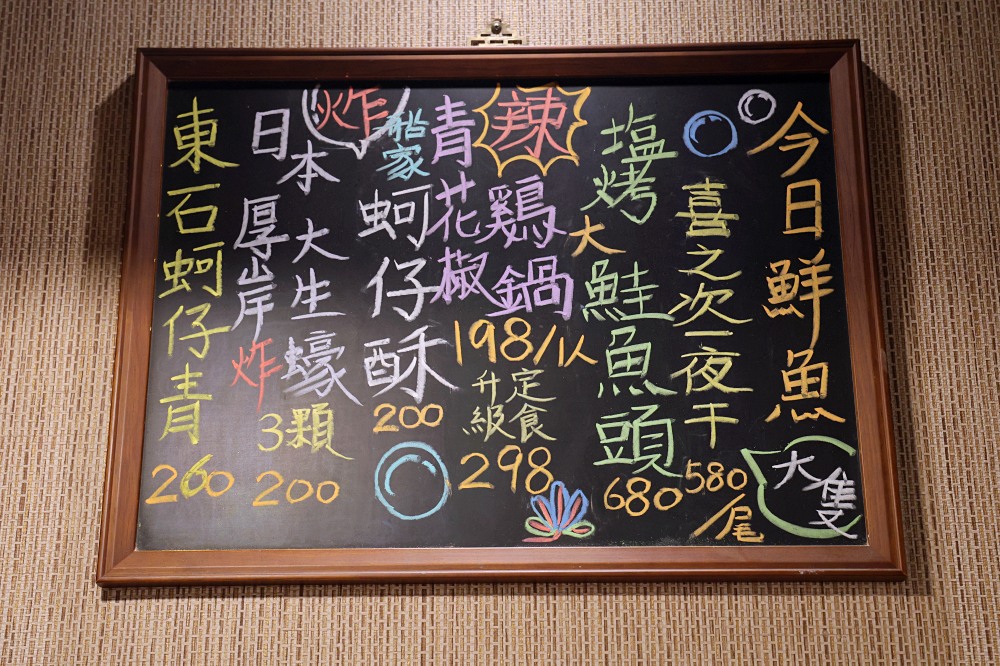 今日鮮魚
大隻
喜之次一夜干
580
尾
塩烤
大鮭魚頭
680
辣
青花椒
鷄鍋
198/1人
定食
升級
298
船家
蚵仔酥
200
炸
日本大生蠔
厚岸炸
3顆
200
東石蚵仔青
260